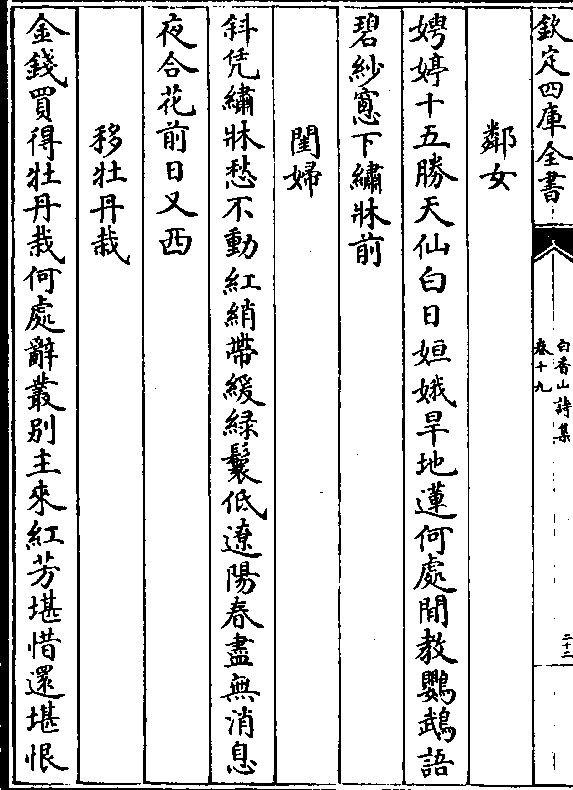 欽定四庫全書
白香山詩集
卷十九
二十二
鄰女
娉婷十五勝天仙白日姮娥旱地蓮何處閒教鸚鵡語
碧紗窻下繡牀前
閨婦
斜凭繡牀愁不動紅綃帶緩綠鬟低遼陽春盡無消息
夜合花前日又西
移牡丹栽
金錢買得牡丹栽何處辭叢别主來紅芳堪惜還堪恨